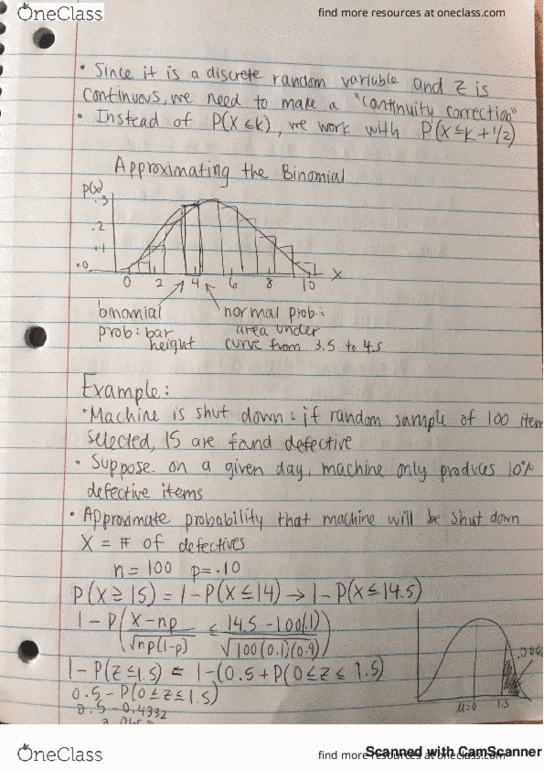 OneClass
find more resources at oneclass.com
• Since it is a discrete random variable and Z is
continuous, we need to make a "continuity correction"
• Instead of P(X≤k), we work with P(X≤k+1/2)
Approximating the Binomial
P(x)
.3
.2
.1
.0
0 2 4 6 8 10 X
binomial
prob: bar
height
normal prob:
area under
curve from 3.5 to 4.5
Example:
• Machine is shut down: if random sample of 100 item
selected, 15 are found defective
• Suppose on a given day, machine only produces 10%
defective items
• Approximate probability that machine will be shut down
X = # of defectives
n=100 p=.10
P(X≥15) = 1-P(X≤14) → 1-P(X≤14.5)
1-P(X-np/√np(1-p) ≤ 14.5-100(.1)/√100(0.1)(0.9))
1-P(Z≤1.5) = 1-(0.5+P(0≤Z≤1.5)
0.5-P(0≤Z≤1.5)
0.5-0.4332
μ=0 1.5
OneClass
find more resources at oneclass.com
Scanned with CamScanner